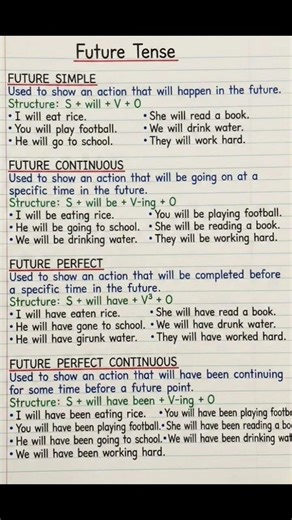 Future Tense
FUTURE SIMPLE
Used to show an action that will happen in the future.
Structure: S + will + V + O
• I will eat rice. • She will read a book.
• You will play football. • We will drink water.
• He will go to school. • They will work hard.
FUTURE CONTINUOUS
Used to show an action that will be going on at a
specific time in the future.
Structure: S + will be + V-ing + O
• I will be eating rice. • You will be playing football.
• He will be going to school. • She will be reading a book.
• We will be drinking water. • They will be working hard.
FUTURE PERFECT
Used to show an action that will be completed before
a specific time in the future.
Structure: S + will have + V³ + O
• I will have eaten rice. • She will have read a book.
• He will have gone to school. • We will have drunk water.
• He will have girunk water. • They will have worked hard.
FUTURE PERFECT CONTINUOUS
Used to show an action that will have been continuing
for some time before a future point.
Structure: S + will have been + V-ing + O
• I will have been eating rice. • You will have been playing footba
• You will have been playing football. • She will have been reading a bo
• He will have been going to school. • We will have been drinking wat
• We will have been working hard.